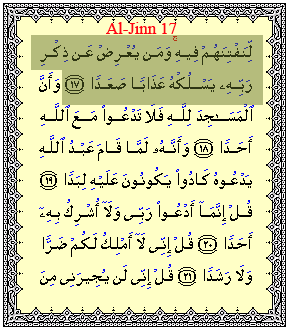 Al-Jinn 17
لِّنَفْتِنَهُمْ فِيهِ ۚ وَمَن يُعْرِضْ عَن ذِكْرِ
رَبِّهِۦ يَسْلُكْهُ عَذَابًا صَعَدًا ١٧ وَأَنَّ
ٱلْمَسَٰجِدَ لِلَّهِ فَلَا تَدْعُوا۟ مَعَ ٱللَّهِ
أَحَدًا ١٨ وَأَنَّهُۥ لَمَّا قَامَ عَبْدُ ٱللَّهِ
يَدْعُوهُ كَادُوا۟ يَكُونُونَ عَلَيْهِ لِبَدًا ١٩
قُلْ إِنَّمَآ أَدْعُوا۟ رَبِّى وَلَآ أُشْرِكُ بِهِۦٓ
أَحَدًا ٢٠ قُلْ إِنِّى لَآ أَمْلِكُ لَكُمْ ضَرًّا
وَلَا رَشَدًا ٢١ قُلْ إِنِّى لَن يُجِيرَنِى مِنَ